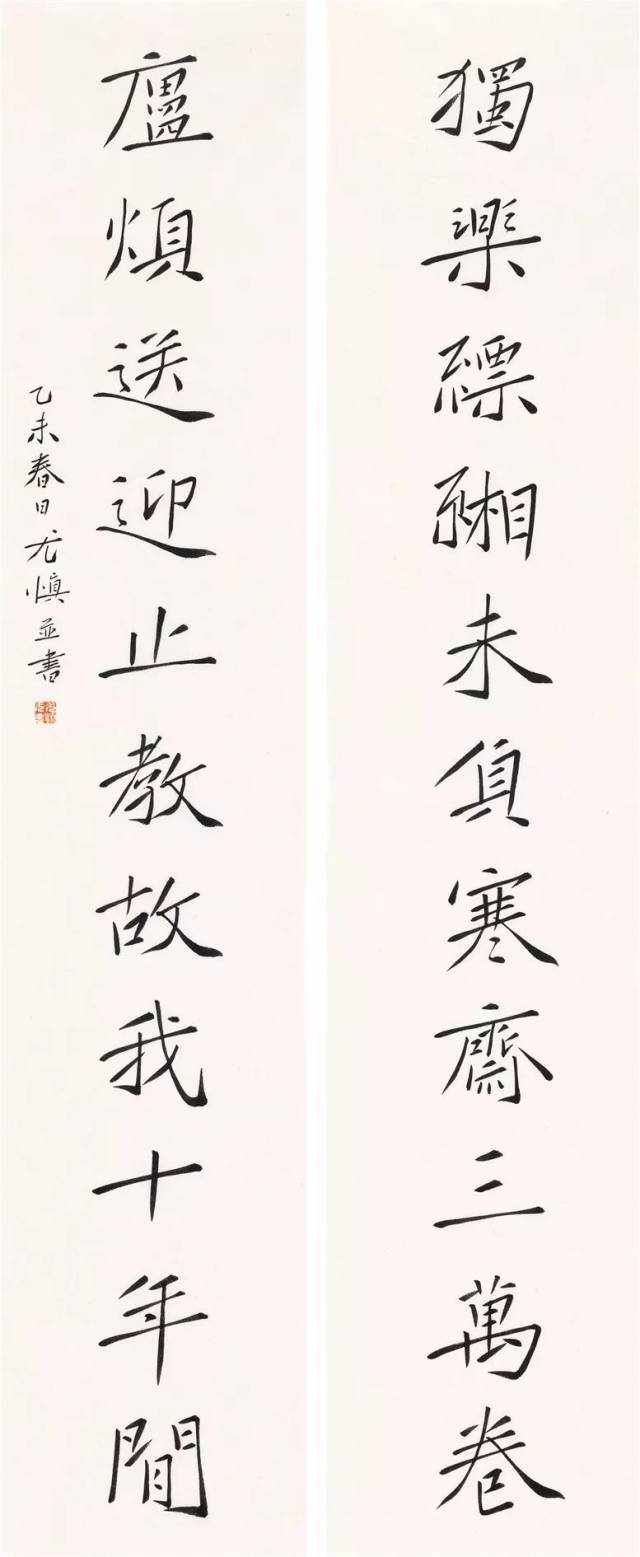 獨樂縹緗未負寒齋三萬卷
廬煩送迎止教故我十年間
乙未春日尤慎並書